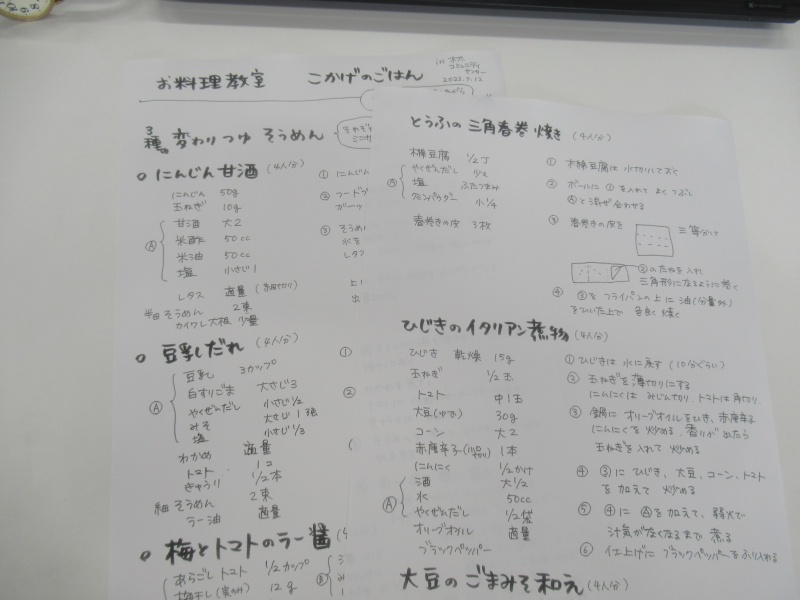 お料理教室 こかげのごはん
コミュニティ
センター
3種の変わりつゆ そうめん
○ にんじん甘酒 (4人分)
にんじん 50g
玉ねぎ 10g
Ⓐ
甘酒 大2
米酢 50cc
米油 50cc
塩 小さじ1
レタス 適量 (細切り)
半田そうめん 2束
カイワレ大根 少量
① にんじん
② フード
③ そうめん
水を
レタス
○ 豆乳だれ (4人分)
Ⓐ
豆乳 3カップ
白すりごま 大さじ3
やくぜんだし 小さじ1/2
みそ 大さじ1強
塩 小さじ1/3
わかめ 適量
トマト 1コ
きゅうり 1/2本
細そうめん 2束
ラー油 適量
①
②
○ 梅とトマトのラー醤
あらごしトマト 1/2カップ
梅干し(実のみ) 12g
Ⓑ
とうふの三角春巻焼き (4人分)
木綿豆腐 1/2丁
Ⓐ
やくぜんだし 少々
塩 ふたつまみ
クミンパウダー 小1/4
春巻きの皮 3枚
① 木綿豆腐は水切りしておく
② ボールに①を入れてよくつぶし
Ⓐと混ぜ合わせる
③ 春巻きの皮を 三等分け
②のたねを入れ
三角形になるように巻く
④ ③をフライパンの上に油(分量外)
をひいた上で 色良く焼く
ひじきのイタリアン煮物 (4人分)
ひじき 乾燥 15g
玉ねぎ 1/2玉
トマト 中1玉
大豆(ゆで) 30g
コーン 大2
赤唐辛子(小口切り) 1本
にんにく 1/2かけ
Ⓐ
酒 大1/2
水 50cc
やくぜんだし 1/2袋
オリーブオイル 適量
ブラックペッパー
① ひじきは水に戻す (10分ぐらい)
② 玉ねぎを薄切りにする
にんにくは みじん切り、トマトは角切り
③ 鍋に オリーブオイルをひき、赤唐辛子
にんにくを炒める。香りが出たら
玉ねぎを入れて炒める
④ ③に ひじき、大豆、コーン、トマト
を加えて 炒める
⑤ ④に Ⓐを加えて、弱火で
汁気がなくなるまで煮る
⑥ 仕上げに ブラックペッパーをふり入れる
大豆のごまみそ和え (4人分)